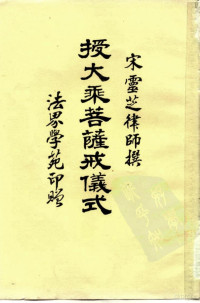 宋靈芝律師撰
授大乘菩薩戒儀式
法界學苑印贈